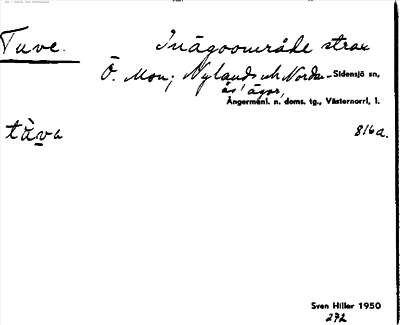 Tuve. Inägoområde strax
Ö. Mon; Nylands och Norda- Sidensjö sn,
ås' ägor,
Ångermanl. n. doms. tg., Västernorrl. l.
tùva 816a.
Sven Hiller 1950
272